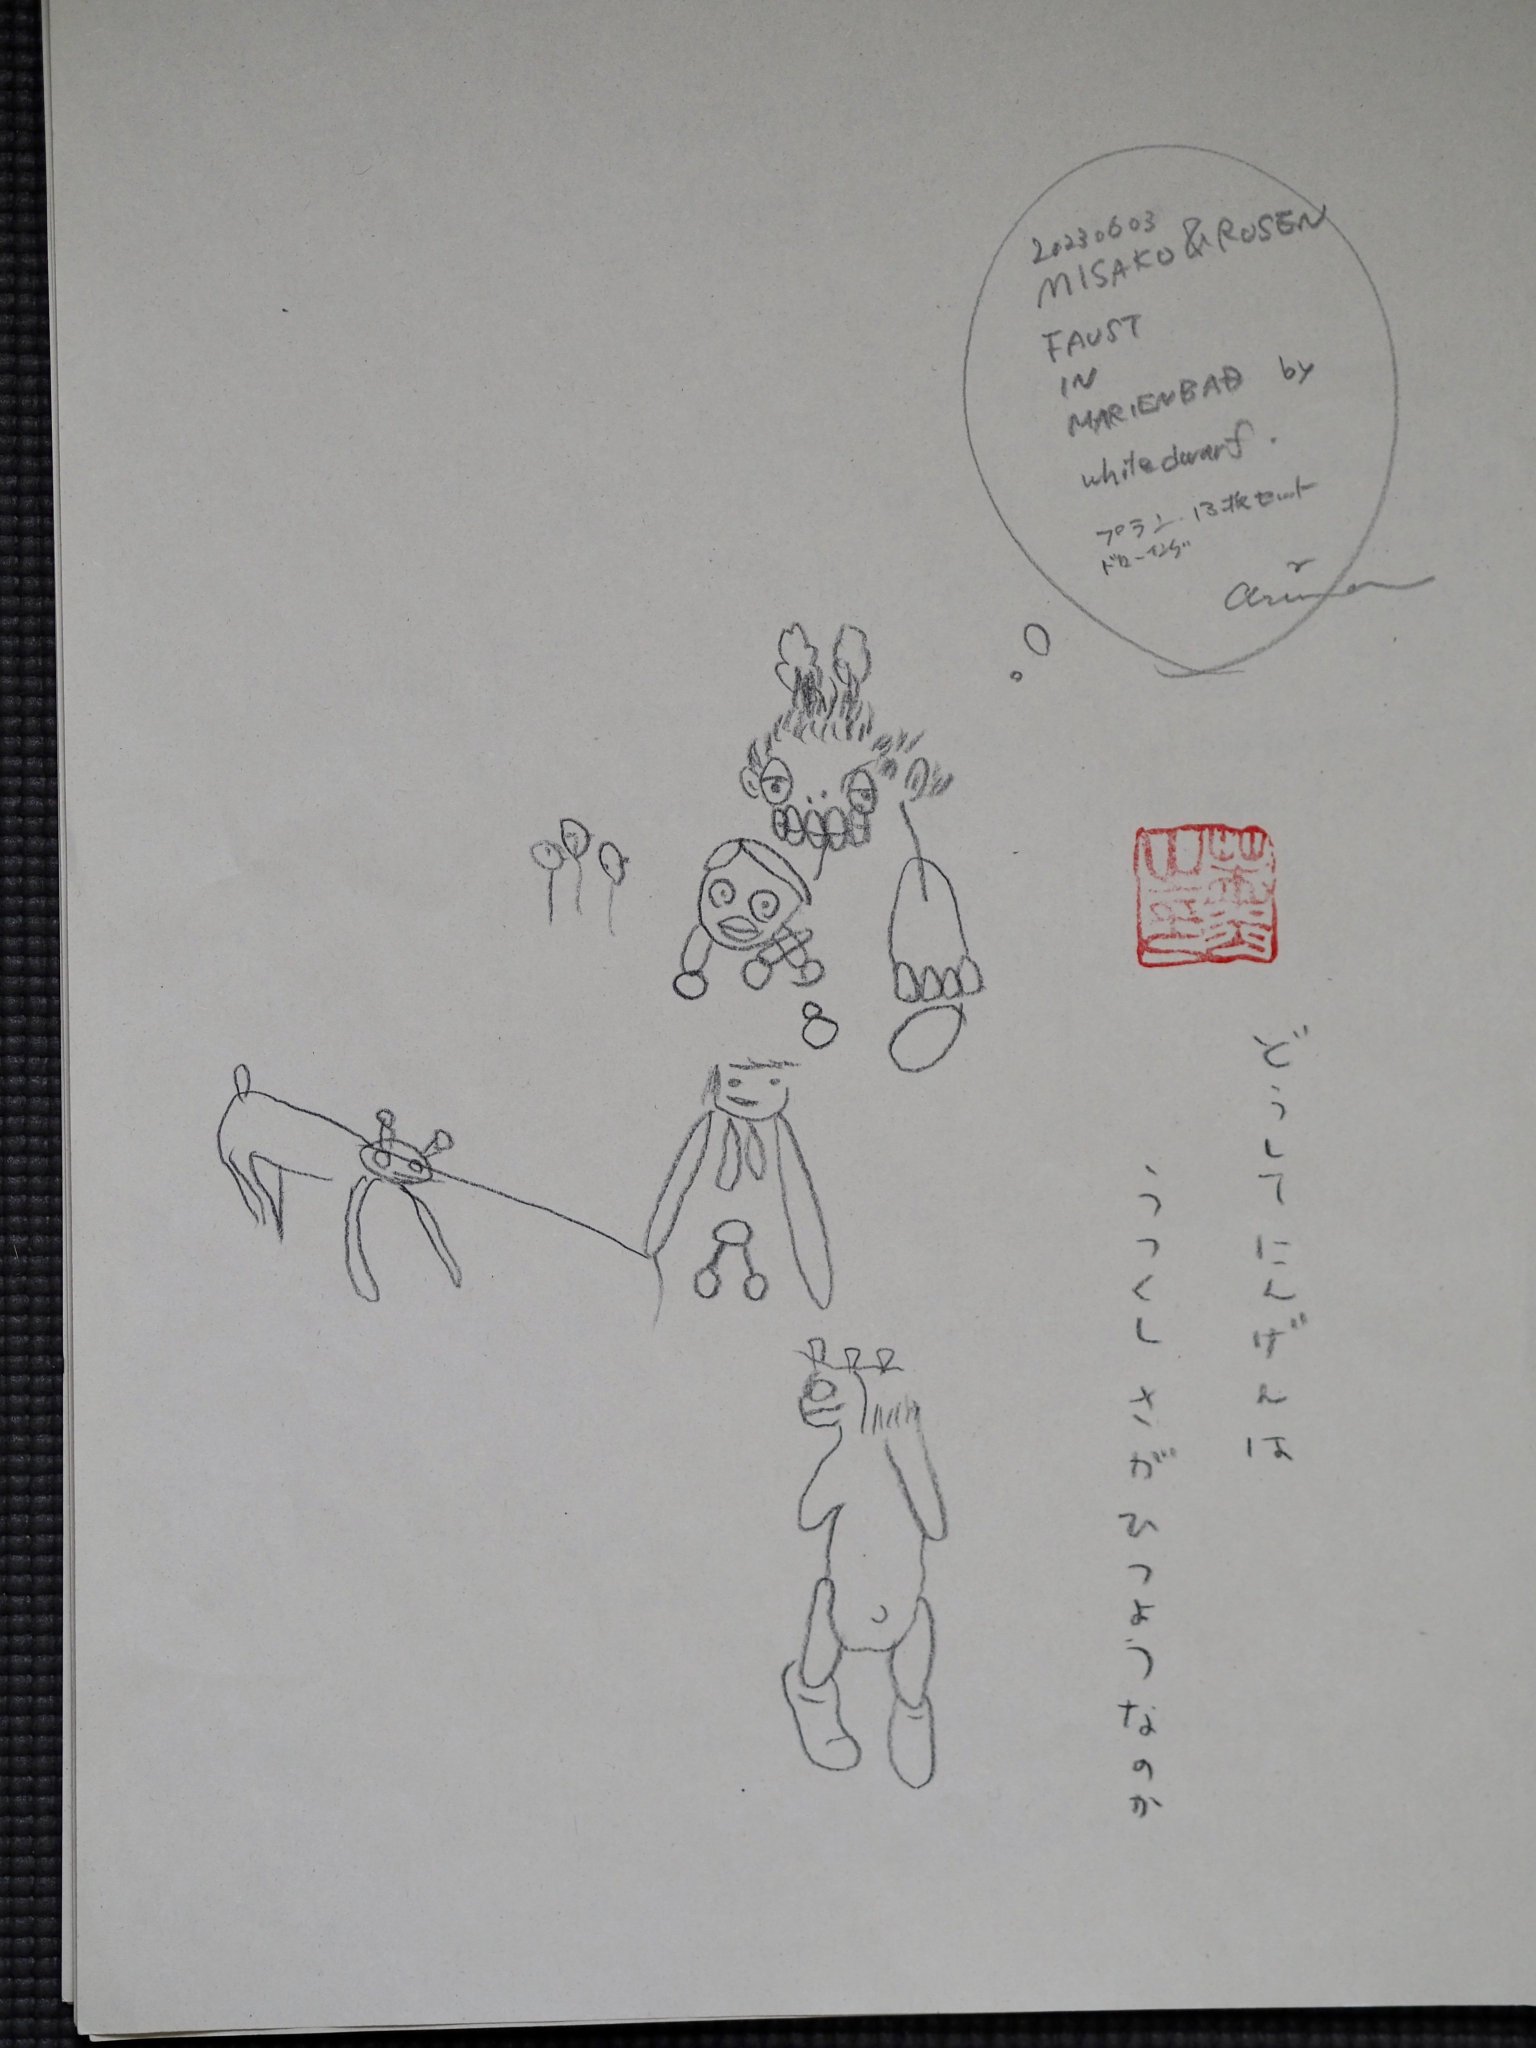 20230603
MISAKO & ROSEN
FAUST
IN
MARIENBAD by
whitedwarf.
プラン 13枚セット
ドローイング
どうしてにんげんは
うつくしさがひつようなのか